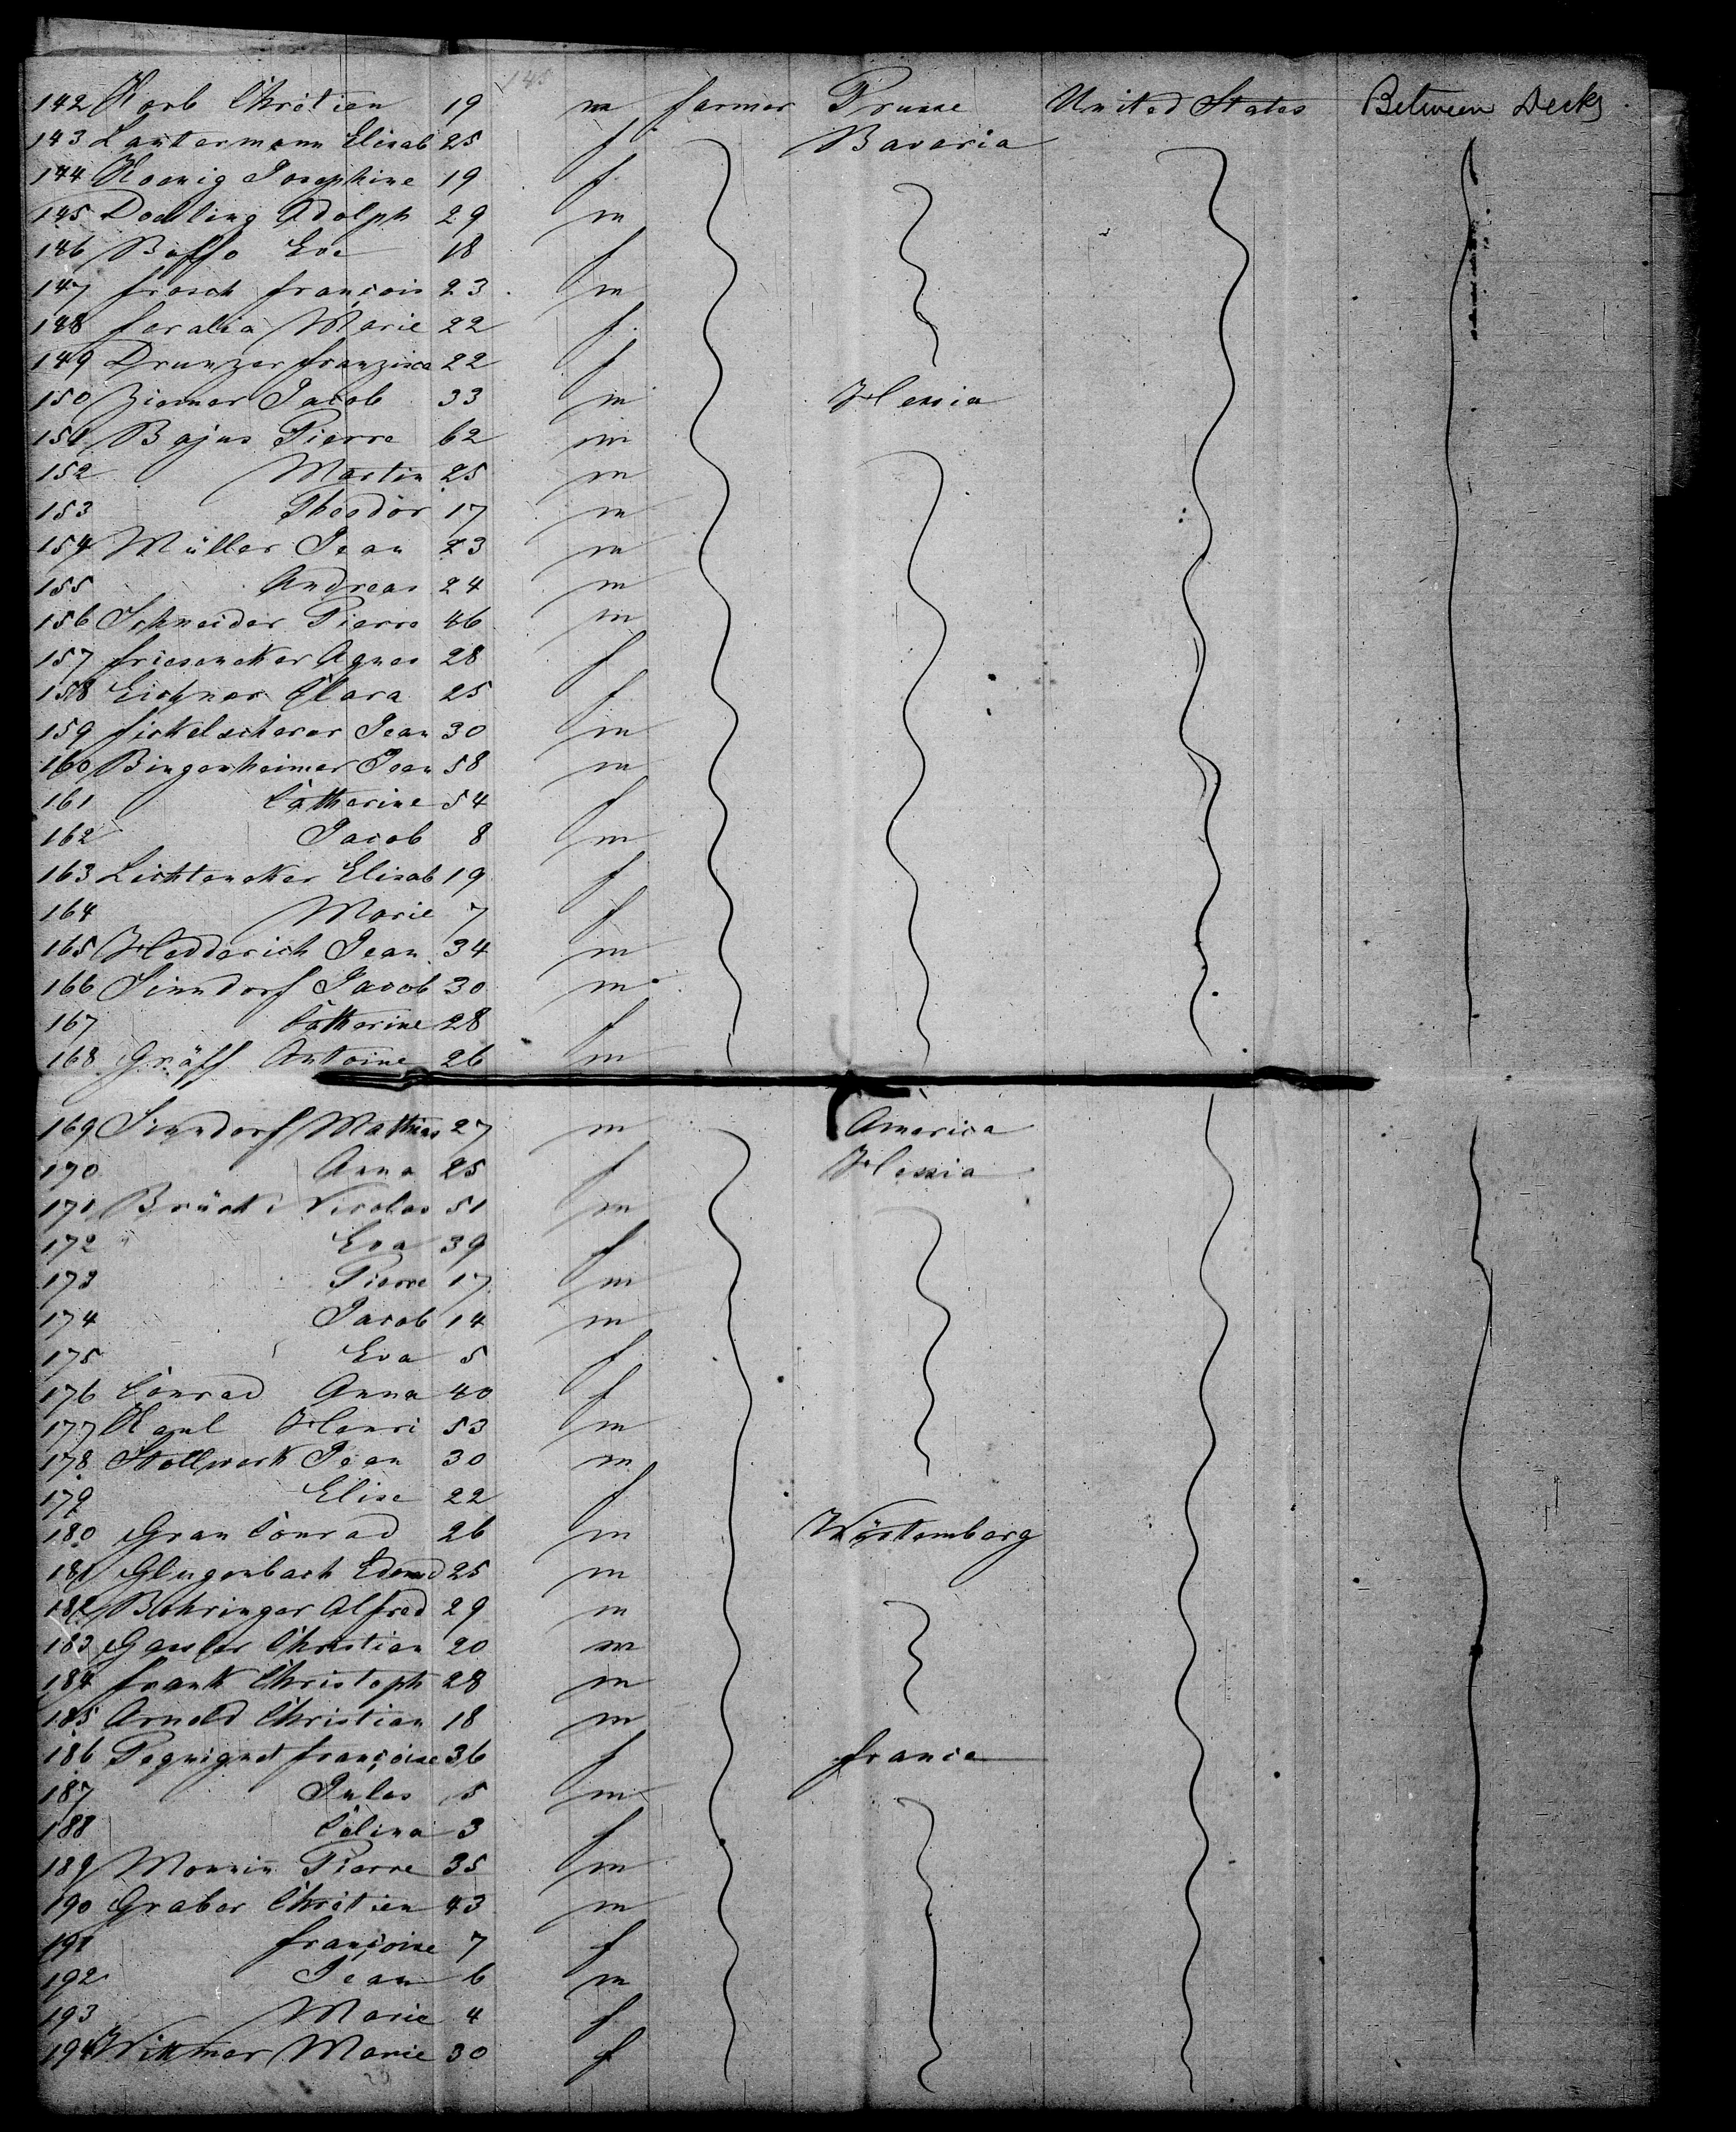 145
142 Korb Chrétien 19 m farmer Prusse United States Between Decks
143 Lautermann Elisab 25 f Bavaria
144 Koenig Josephine 19 f
145 Doelling Adolph 29 m
146 Boffo Eva 18 f
147 frosch françois 23 m
148 Marie 22 f
149 franzisca 22 f
150 Ziemer Jacob 33 m Hessia
151 Bajus Pierre 62 m
152 Martin 25 m
153 Theodor 17 m
154 Müller Jean 23 m
155 Andreas 24 m
156 Schneider Pierre 46 m
157 Agnes 28 f
158 Eichner Clara 25 f
159 fickelscherer Jean 30 m
160 Bingenheimer Jean 58 m
161 Catherine 54 f
162 Jacob 8 m
163 Elisab 19 f
164 Marie 7 f
165 Hedderich Jean 34 m
166 Sinndorf Jacob 30 m
167 Catherine 28 f
168 Gräff Antoine 26 m
169 Sinndorf Mathias 27 m America
170 Anna 25 f Hessia
171 Brück Nicolas 51 m
172 Eva 39 f
173 Pierre 17 m
174 Jacob 14 m
175 Eva 5 f
176 Conrad Anna 40 f
177 Henri 53 m
178 Stollwerk Jean 30 m
179 Elise 22 f
180 Grau Conrad 26 m Würtemberg
181 25 m
182 Bohringer Alfred 29 m
183 Gessler Christian 20 m
184 frank Christoph 28 m
185 Arnold Christian 18 m
186 Pequignot françoise 36 f france
187 Jules 5 m
188 Célina 3 f
189 Monnin Pierre 35 m
190 Graber Chrétien 43 m
191 françoise 7 f
192 Jean 6 m
193 Marie 4 f
194 Wittmer Marie 30 f